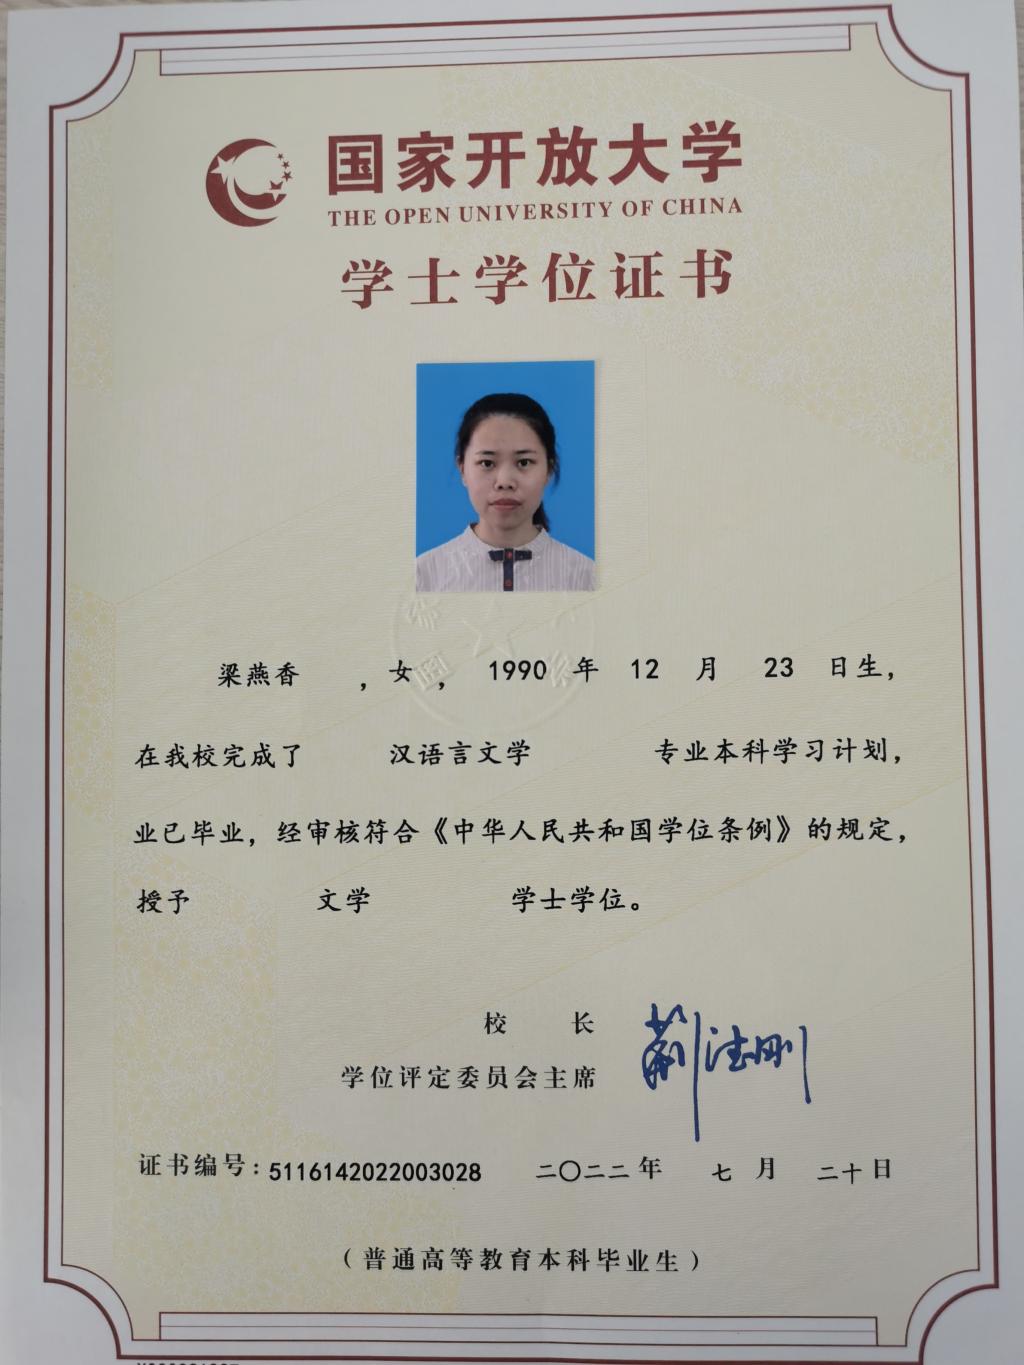 国家开放大学
THE OPEN UNIVERSITY OF CHINA
学士学位证书
梁燕香 ，女 ， 1990 年 12 月 23 日生，
在我校完成了 汉语言文学 专业本科学习计划，
业已毕业，经审核符合《中华人民共和国学位条例》的规定，
授予 文学 学士学位。
校 长
学位评定委员会主席
荆德刚
证书编号：5116142022003028 二〇二二年 七 月 二十日
（普通高等教育本科毕业生）